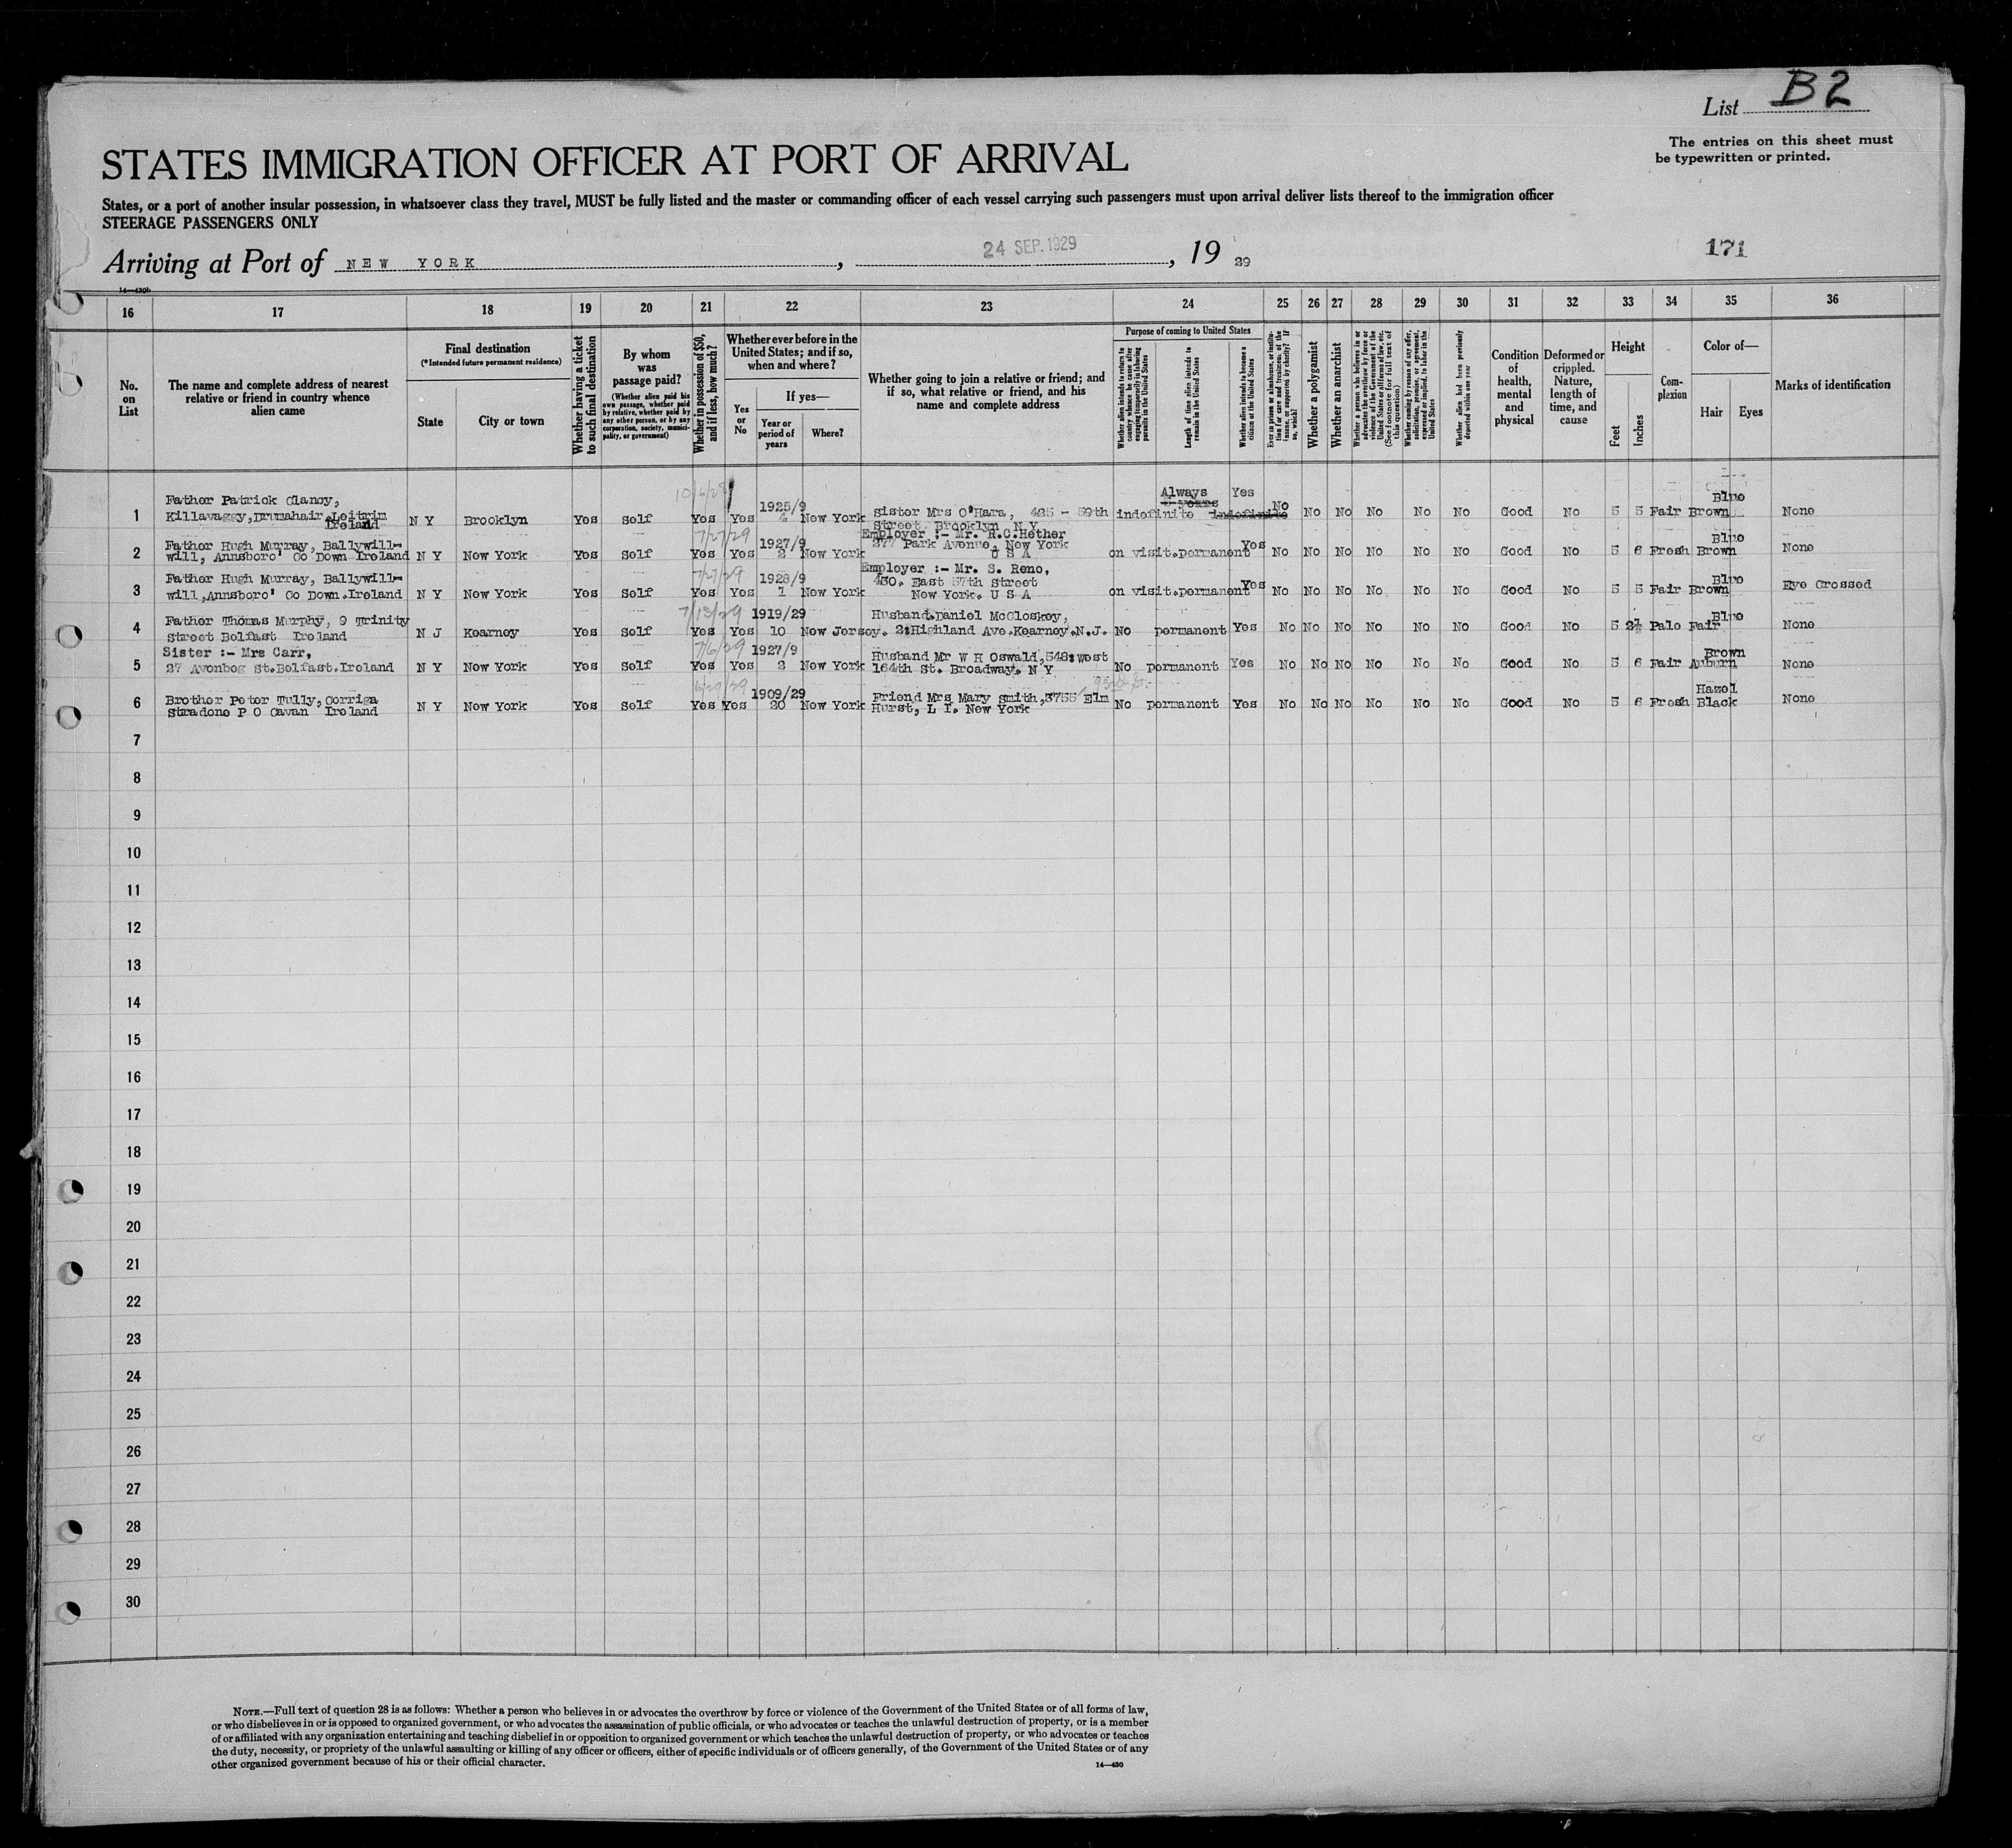 List B2
The entries on this sheet must
be typewritten or printed.
STATES IMMIGRATION OFFICER AT PORT OF ARRIVAL
States, or a port of another insular possession, in whatsoever class they travel, MUST be fully listed and the master or commanding officer of each vessel carrying such passengers must upon arrival deliver lists thereof to the immigration officer
STEERAGE PASSENGERS ONLY
Arriving at Port of NEW YORK, 24 SEP. 1929, 19 29
171
14—430b
16 17 18 19 20 21 22 23 24 25 26 27 28 29 30 31 32 33 34 35 36
No.
on
List
The name and complete address of nearest
relative or friend in country whence
alien came
Final destination
(*Intended future permanent residence)
State
City or town
Whether having a ticket
to such final destination
By whom
was
passage paid?
(Whether alien paid his
own passage, whether paid
by relative, whether paid by
any other person, or by any
corporation, society, munici-
pality, or government)
Whether in possession of $50,
and if less, how much?
Whether ever before in the
United States; and if so,
when and where?
Yes
or
No
If yes—
Year or
period of
years
Where?
Whether going to join a relative or friend; and
if so, what relative or friend, and his
name and complete address
Purpose of coming to United States
Whether alien intends to return to
country whence he came after
engaging temporarily in laboring
pursuits in the United States
Length of time alien intends to
remain in the United States
Whether alien intends to become a
citizen of the United States
Ever in prison or almshouse, or institu-
tion for care and treatment of the
insane, or supported by charity? If
so, which?
Whether a polygamist
Whether an anarchist
Whether a person who believes in or
advocates the overthrow by force or
violence of the Government of the
United States or all forms of law, etc.
(See footnote for full text of
this question)
Whether coming by reason of any offer,
solicitation, promise, or agreement,
expressed or implied, to labor in the
United States
Whether alien had been previously
deported within one year
Condition
of
health,
mental
and
physical
Deformed or
crippled.
Nature,
length of
time, and
cause
Height
Feet
Inches
Com-
plexion
Color of—
Hair
Eyes
Marks of identification
10/6/28
Father Patrick Clancy, 1925/9 Always Yes Blue
1 Killavaggy, Drumahair Leitrim N Y Brooklyn Yes Self Yes Yes 4 New York Sister Mrs O'Hara, 425 - 59th indefinite 5 years indefinite No No No No No No Good No 5 5 Fair Brown None
Ireland Street Brooklyn N Y
7/27/29
Father Hugh Murray, Ballywill- 1927/9 Employer :- Mr. R.C.Hether Yes Blue
2 will, Annsboro' Co Down Ireland N Y New York Yes Self Yes Yes 2 New York 277 Park Avenue. New York U S A on visit.permanent No No No No No No Good No 5 6 Fresh Brown None
7/27/29
Father Hugh Murray, Ballywill- 1928/9 Employer :- Mr. S. Reno, Yes Blue
3 will,Annsboro' Co Down.Ireland N Y New York Yes Self Yes Yes 1 New York 430. East 57th Street New York. U S A on visit.permanent No No No No No No Good No 5 5 Fair Brown Eye Crossed
7/13/29
Father Thomas Murphy, 9 Trinity 1919/29 Husband.Daniel McCloskey, Blue
4 Street Belfast Ireland N J Kearney Yes Self Yes Yes 10 New Jersey. 2:Highland Ave.Kearney.N.J. No permanent Yes No No No No No No Good No 5 2½ Pale Fair None
7/6/29
Sister :- Mrs Carr, 1927/9 Husband Mr W H Oswald,548:West Brown
5 27 Avonbeg St.Belfast.Ireland N Y New York Yes Self Yes Yes 2 New York 164th St. Broadway. N Y No permanent Yes No No No No No No Good No 5 6 Fair Auburn None
6/29/29
Brother Peter Tully, Corriga 1909/29 Friend Mrs Mary Smith,3755 Elm Hazel
6 Stradone P O Cavan Ireland N Y New York Yes Self Yes Yes 20 New York Hurst, L I. New York No permanent Yes No No No No No No Good No 5 6 Fresh Black None
7
8
9
10
11
12
13
14
15
16
17
18
19
20
21
22
23
24
25
26
27
28
29
30
NOTE.—Full text of question 28 is as follows: Whether a person who believes in or advocates the overthrow by force or violence of the Government of the United States or of all forms of law,
or who disbelieves in or is opposed to organized government, or who advocates the assassination of public officials, or who advocates or teaches the unlawful destruction of property, or is a member
of or affiliated with any organization entertaining and teaching disbelief in or opposition to organized government or which teaches the unlawful destruction of property, or who advocates or teaches
the duty, necessity, or propriety of the unlawful assaulting or killing of any officer or officers, either of specific individuals or of officers generally, of the Government of the United States or of any
other organized government because of his or their official character.
14—430